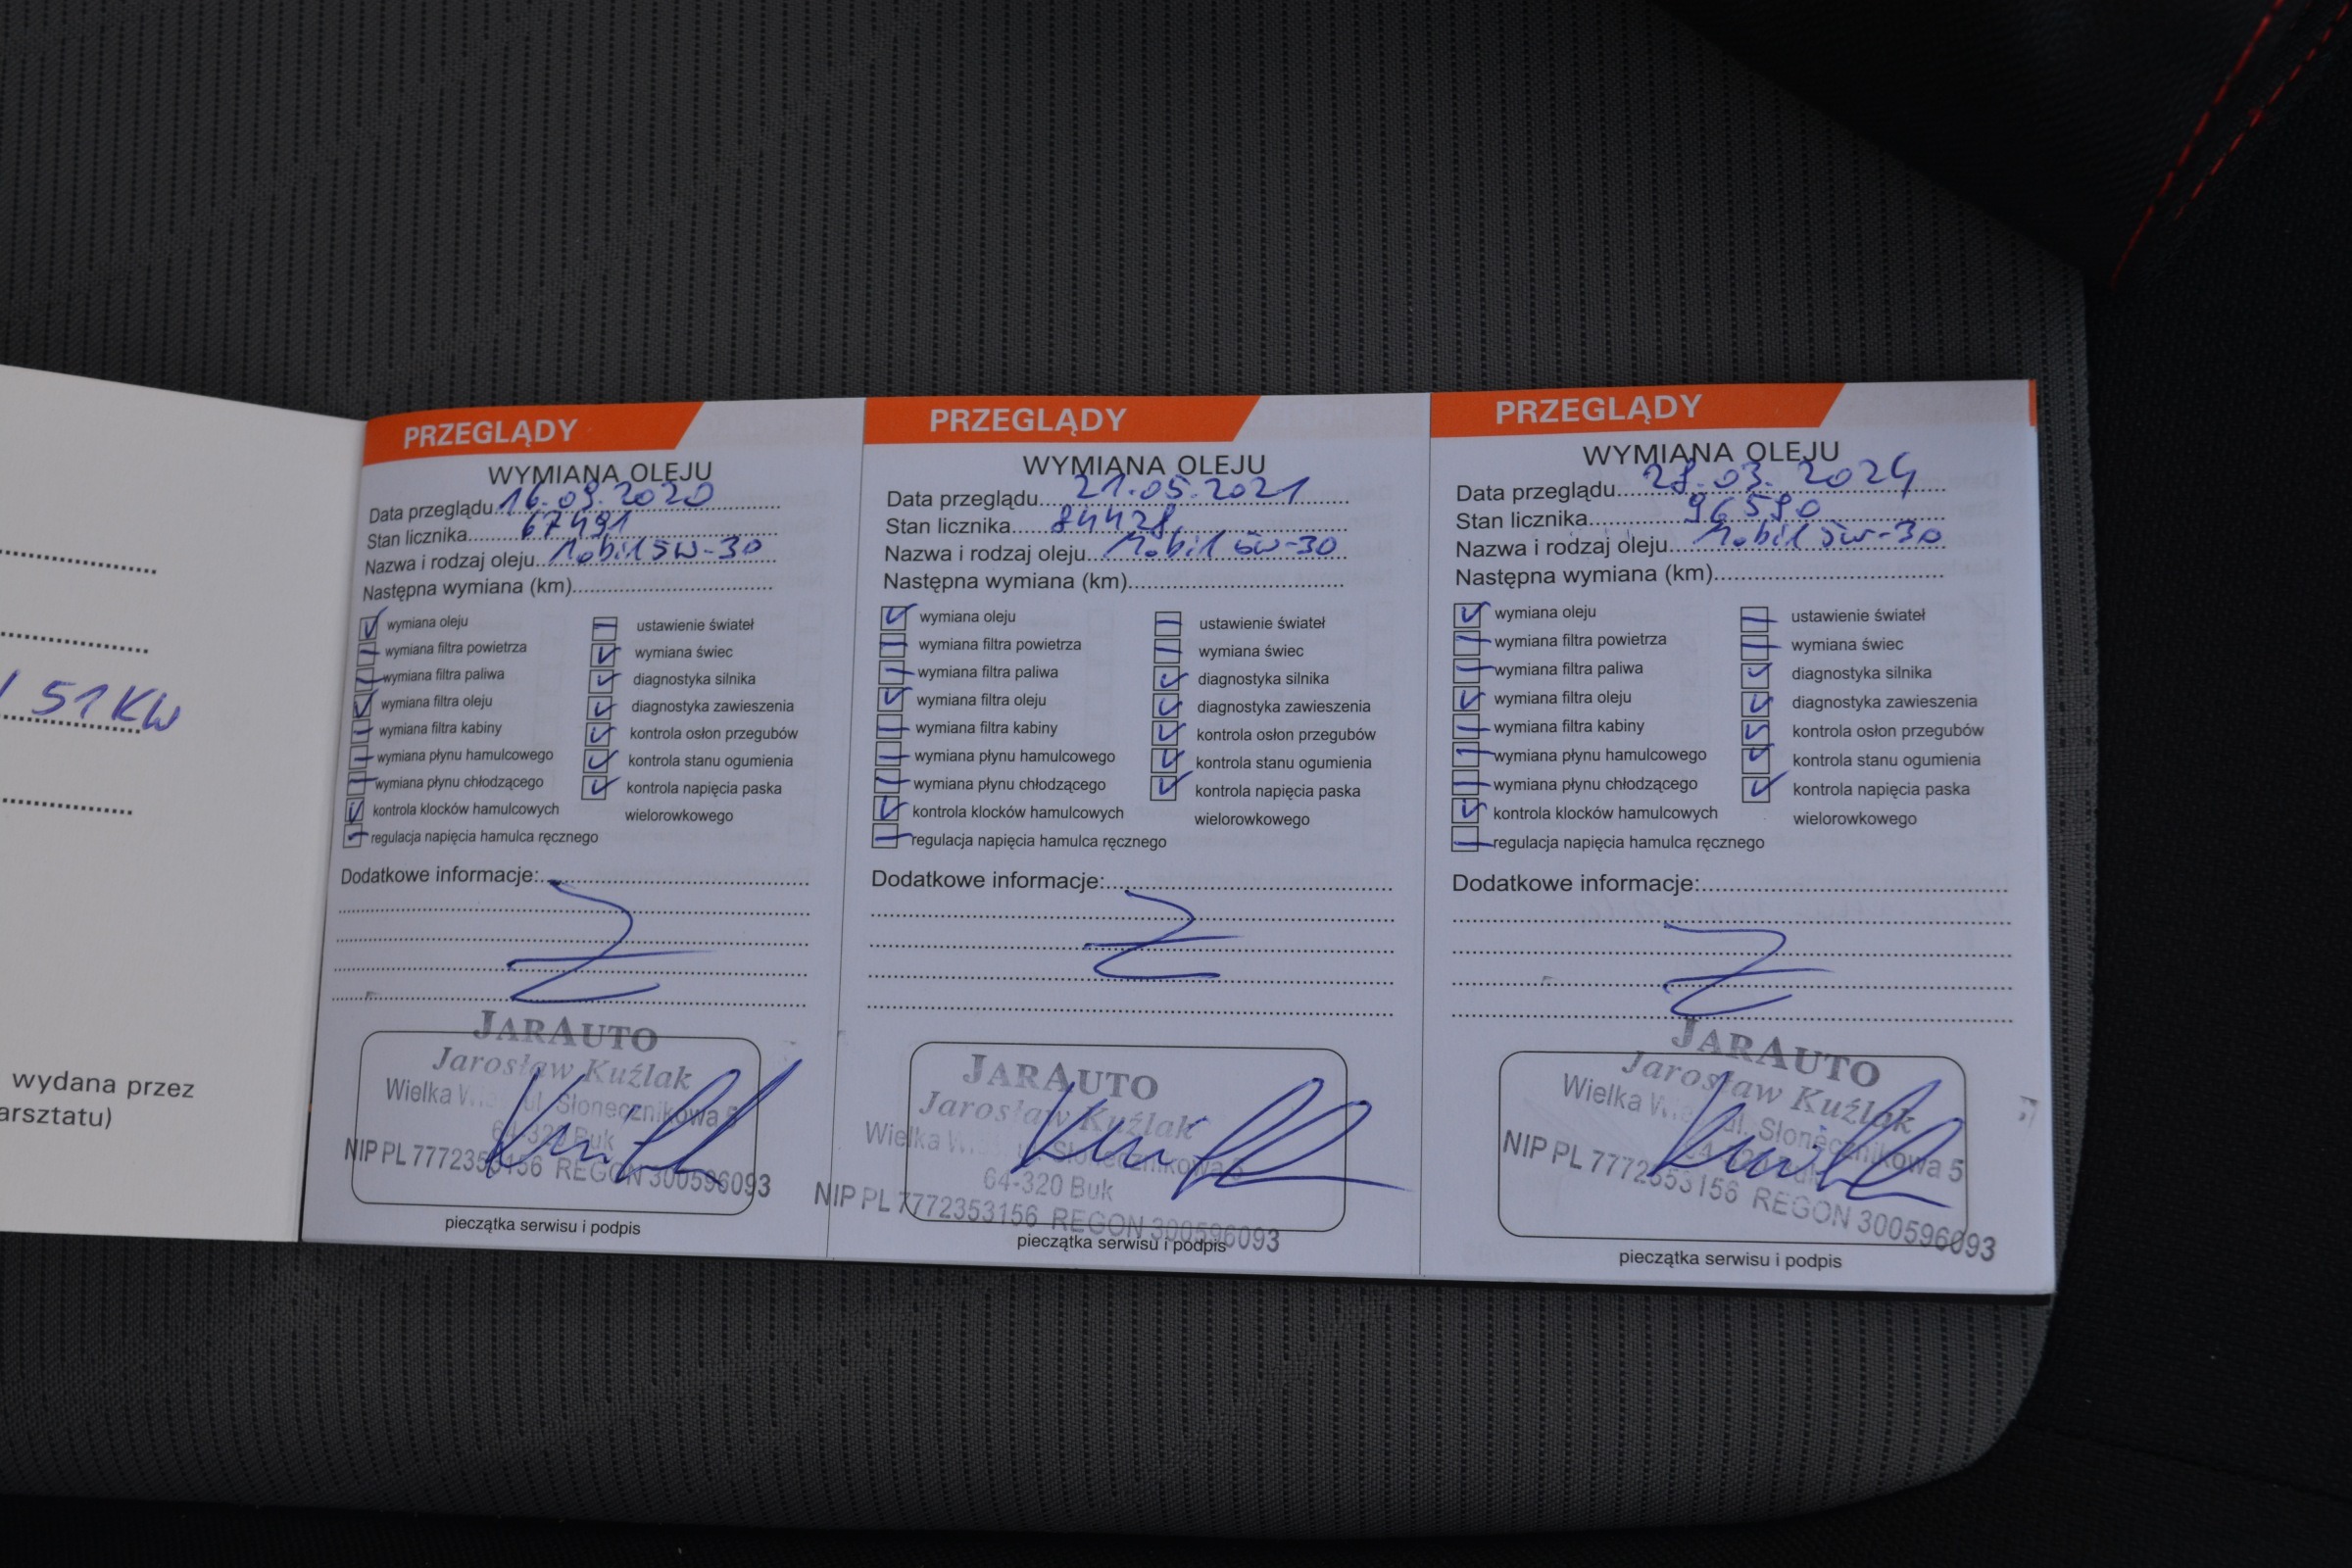 51 KW
wydana przez
arsztatu)
PRZEGLĄDY
WYMIANA OLEJU
Data przeglądu 16.09.2020
Stan licznika 67491
Nazwa i rodzaj oleju Mobil 5W-30
Następna wymiana (km)
wymiana oleju
wymiana filtra powietrza
wymiana filtra paliwa
wymiana filtra oleju
wymiana filtra kabiny
wymiana płynu hamulcowego
wymiana płynu chłodzącego
kontrola klocków hamulcowych
regulacja napięcia hamulca ręcznego
ustawienie świateł
wymiana świec
diagnostyka silnika
diagnostyka zawieszenia
kontrola osłon przegubów
kontrola stanu ogumienia
kontrola napięcia paska
wielorowkowego
Dodatkowe informacje:
JARAUTO
Jarosław Kuźlak
Wielka ul. Słonecznikowa 5
64-320 Buk
NIP PL 7772353156 REGON 300596093
pieczątka serwisu i podpis
PRZEGLĄDY
WYMIANA OLEJU
Data przeglądu 21.05.2021
Stan licznika 84428
Nazwa i rodzaj oleju Mobil 5W-30
Następna wymiana (km)
wymiana oleju
wymiana filtra powietrza
wymiana filtra paliwa
wymiana filtra oleju
wymiana filtra kabiny
wymiana płynu hamulcowego
wymiana płynu chłodzącego
kontrola klocków hamulcowych
regulacja napięcia hamulca ręcznego
ustawienie świateł
wymiana świec
diagnostyka silnika
diagnostyka zawieszenia
kontrola osłon przegubów
kontrola stanu ogumienia
kontrola napięcia paska
wielorowkowego
Dodatkowe informacje:
JARAUTO
Jarosław Kuźlak
Wielka ul. Słonecznikowa 5
64-320 Buk
NIP PL 7772353156 REGON 300596093
pieczątka serwisu i podpis
PRZEGLĄDY
WYMIANA OLEJU
Data przeglądu 28.03.2024
Stan licznika 96590
Nazwa i rodzaj oleju Mobil 5W-30
Następna wymiana (km)
wymiana oleju
wymiana filtra powietrza
wymiana filtra paliwa
wymiana filtra oleju
wymiana filtra kabiny
wymiana płynu hamulcowego
wymiana płynu chłodzącego
kontrola klocków hamulcowych
regulacja napięcia hamulca ręcznego
ustawienie świateł
wymiana świec
diagnostyka silnika
diagnostyka zawieszenia
kontrola osłon przegubów
kontrola stanu ogumienia
kontrola napięcia paska
wielorowkowego
Dodatkowe informacje:
JARAUTO
Jarosław Kuźlak
Wielka ul. Słonecznikowa 5
64-320 Buk
NIP PL 7772353156 REGON 300596093
pieczątka serwisu i podpis